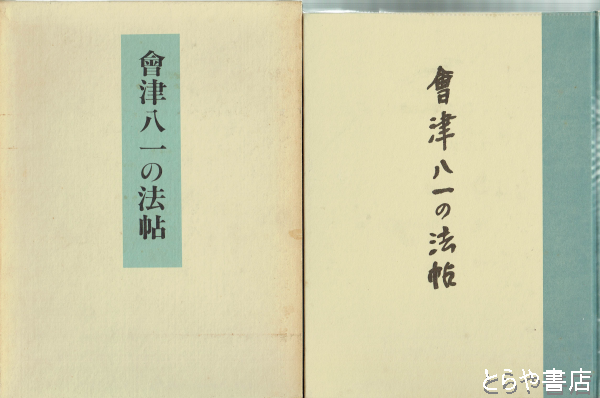 會津八一の法帖
會津八一の法帖
とらや書店